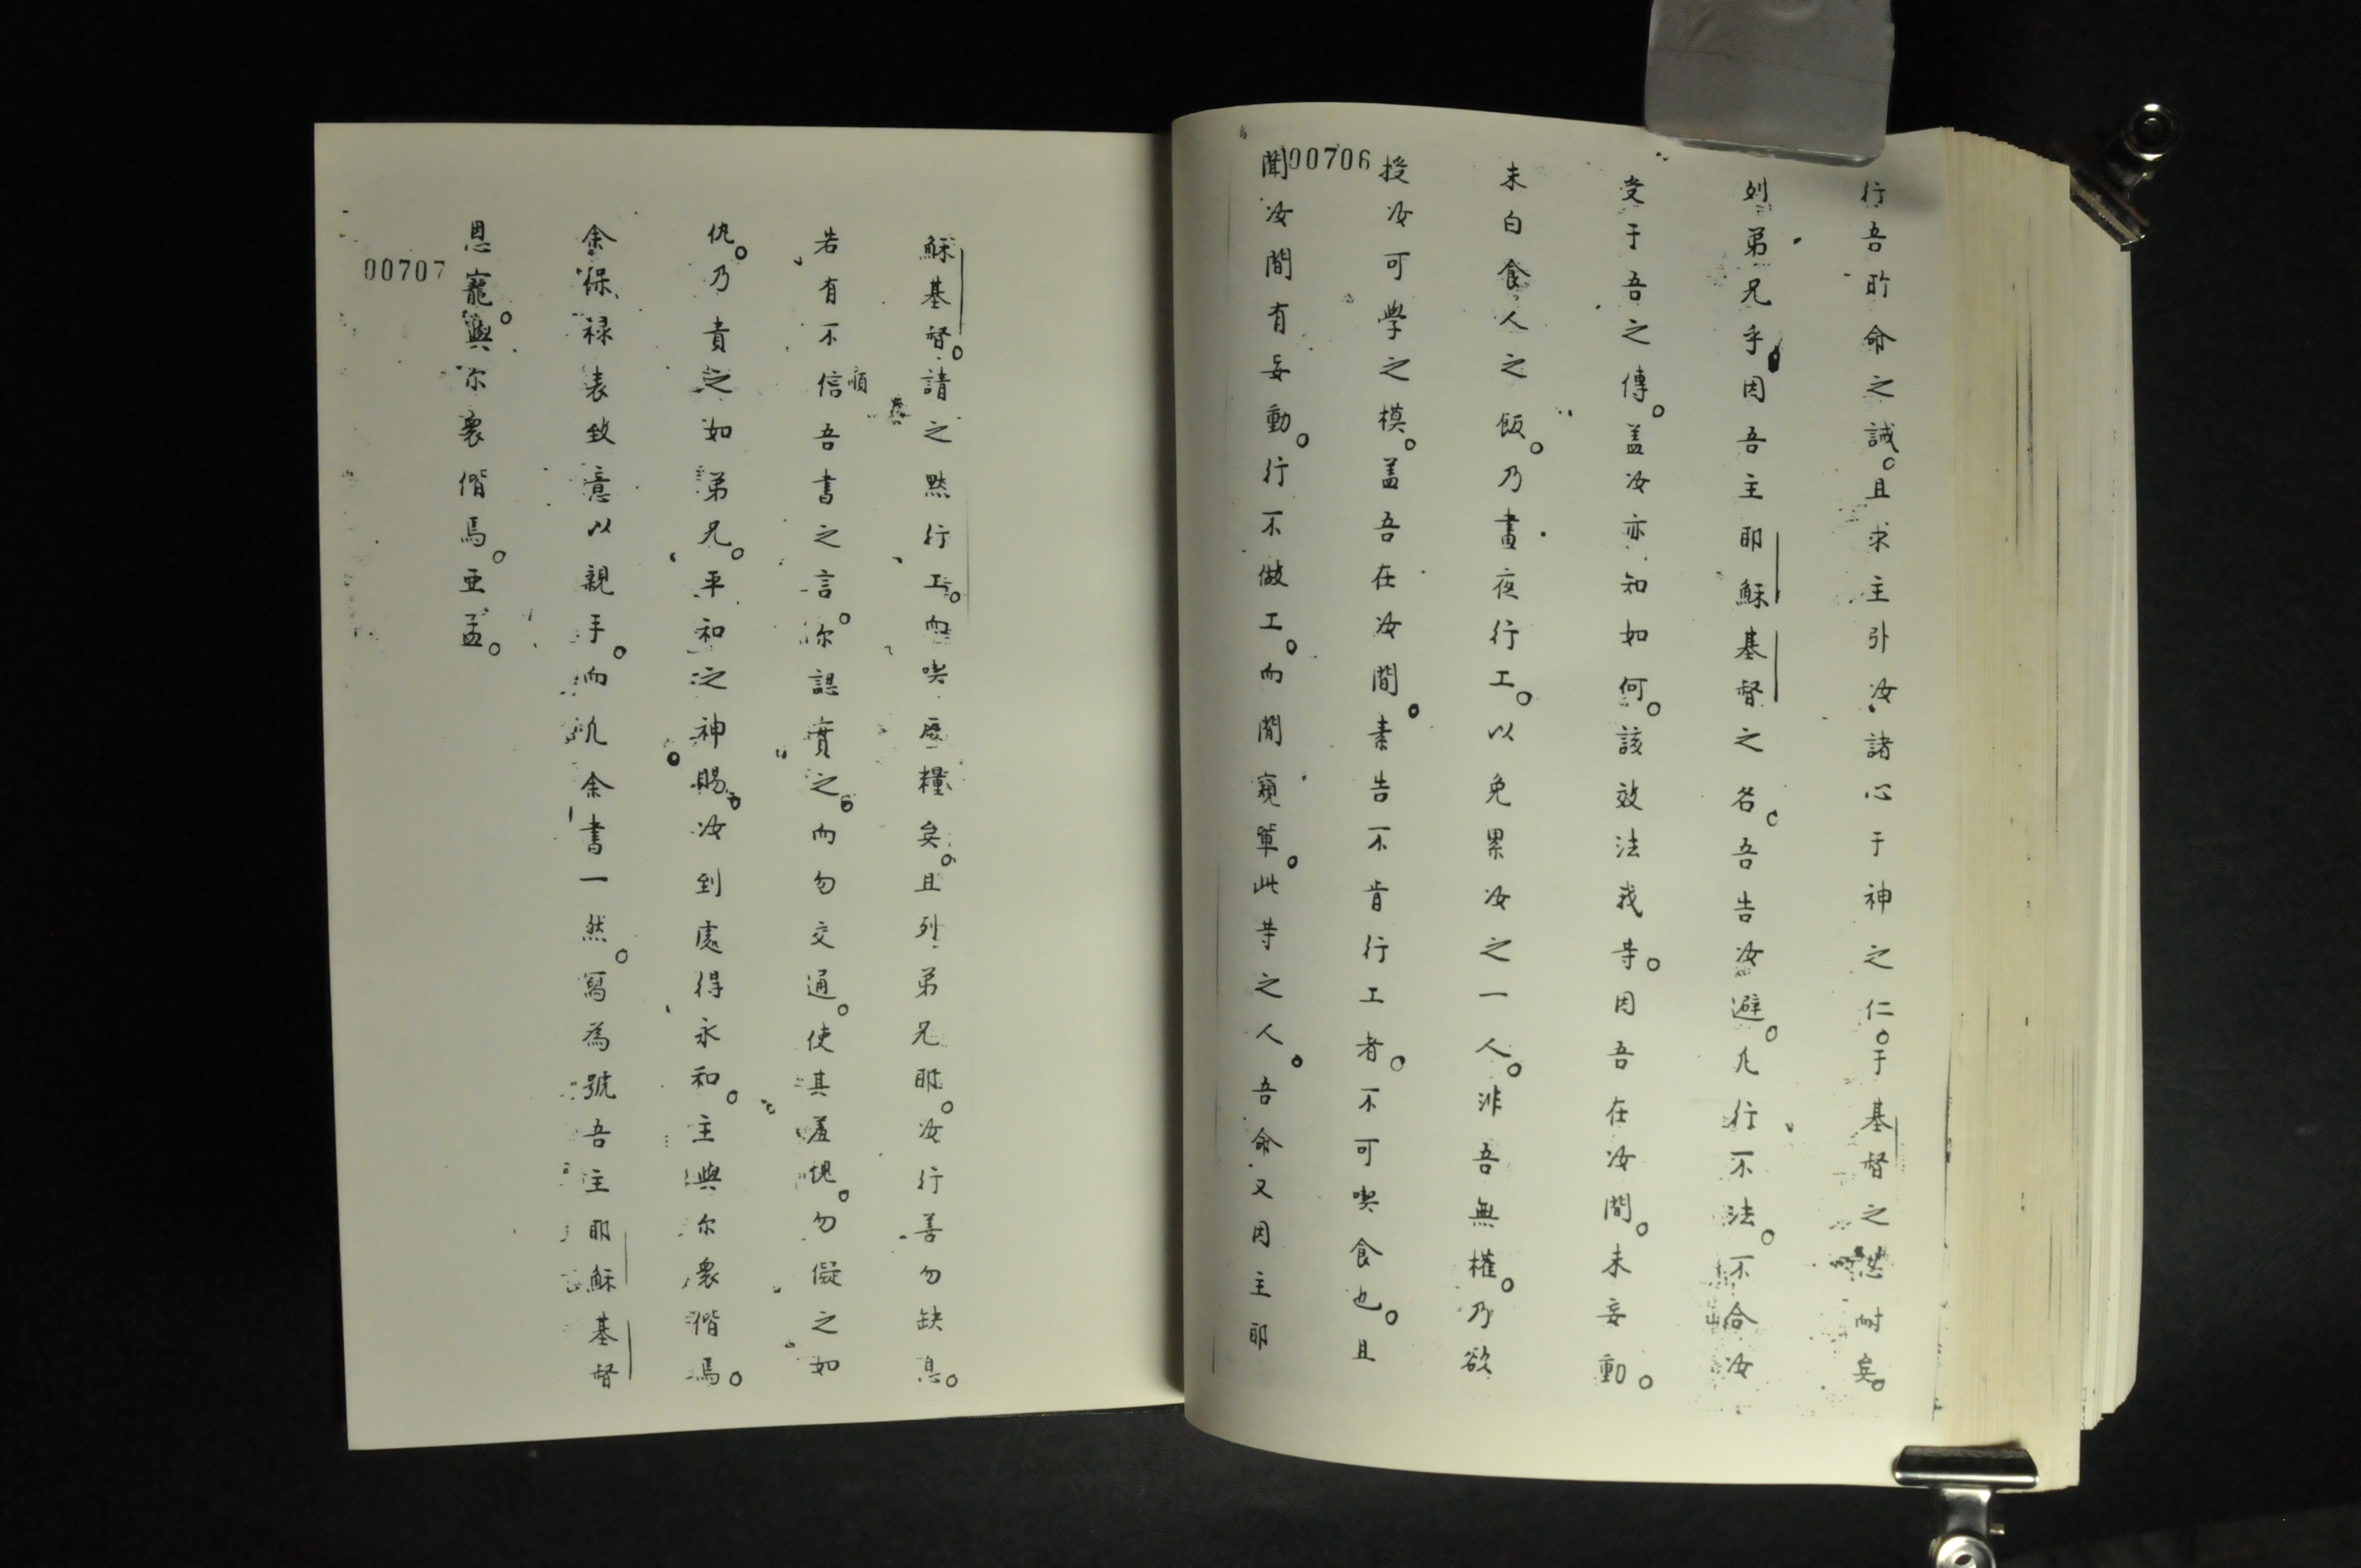 行吾所命之誡。且求主引汝諸心于神之仁。于基督之忍耐矣。
列弟兄乎因吾主耶穌基督之名。吾告汝避。凢行不法。不合汝
受于吾之傳。盖汝亦知如何。該效法我等。因吾在汝間。未妄動。
未白食人之飯。乃晝夜行工。以免累汝之一人。非吾無權。乃欲
授汝可學之模。盖吾在汝間。素告不肯行工者。不可喫食也。且
聞汝間有妄動。行不做工。而閒窺軰。此等之人。吾命又因主耶
00706
穌基督。請之黙行工。而喫厥糧矣。且列弟兄耶。汝行善勿缺息。
若有不信順吾書之言。你認實之。而勿交通。使其羞愧。勿儗之如
仇。乃責之如弟兄。平和之神。賜汝到處得永和。主與你衆偕焉。
余保禄表致意以親手。而凢余書一然。寫為號吾主耶穌基督
恩寵。與你衆偕焉。亚孟。
00707